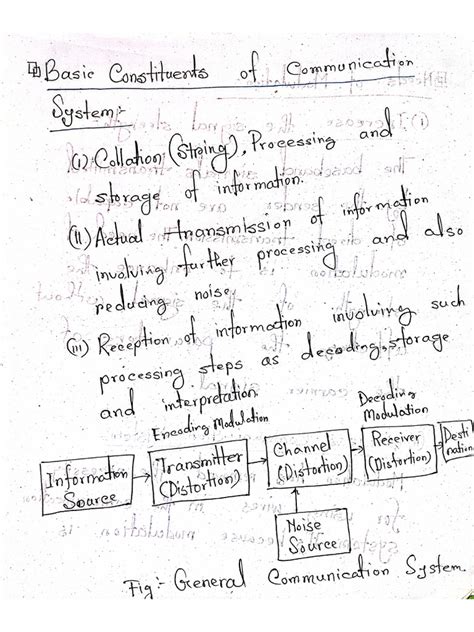 Basic Constituents of Communication
System:-
(i) Collation (String), Processing and
storage of information.
(ii) Actual transmission of information
involving further processing and also
reducing noise.
(iii) Reception of information involving such
processing steps as decoding, storage
and interpretation.
Encoding Modulation
Decoding
Modulation
Information
Source
Transmitter
(Distortion)
Channel
(Distortion)
Receiver
(Distortion)
Desti
nation
Noise
Source
Fig:- General Communication System.